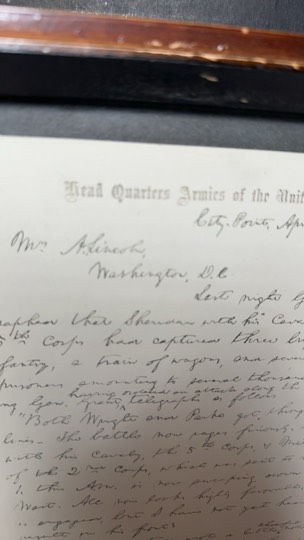 Head Quarters Armies of the Unit
City Point, Apr
Mrs A. Lincoln,
Washington, D.C.
Last night G
raphed that Sheridan with his Cava
5th Corps had captured three br
fantry, a train of wagons, and seve
prisoners amounting to several thousan
having ordered an attack along the
ing Gen. Grant telegraphs as follows
"Both Wright and Parke got throu
lines. The battle now rages furiously.
with his Cavalry, the 5th Corps, &
of the 2nd Corps, which was sent to
this A.M. is now sweeping down
West. All now looks highly favorable.
engaged, but I have not yet hea
result on his front